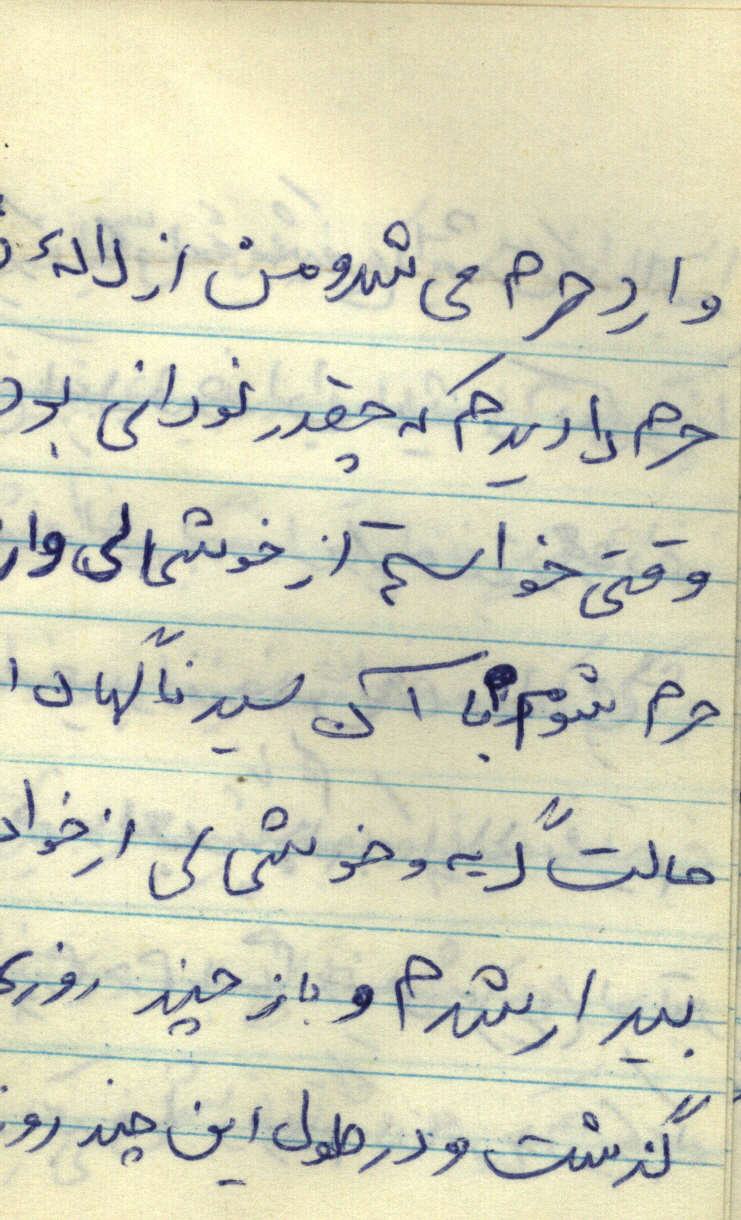 وارد حرم می شد و من از لاله
حرم را دیدم که چقدر نورانی بود
وقتی خواستم از خوشحالی وارد
حرم شوم با آن سید ناگهان
حالت گریه و خوشحالی از خواب
بیدار شدم و باز چند روزی
گذشت و در طول این چند روز